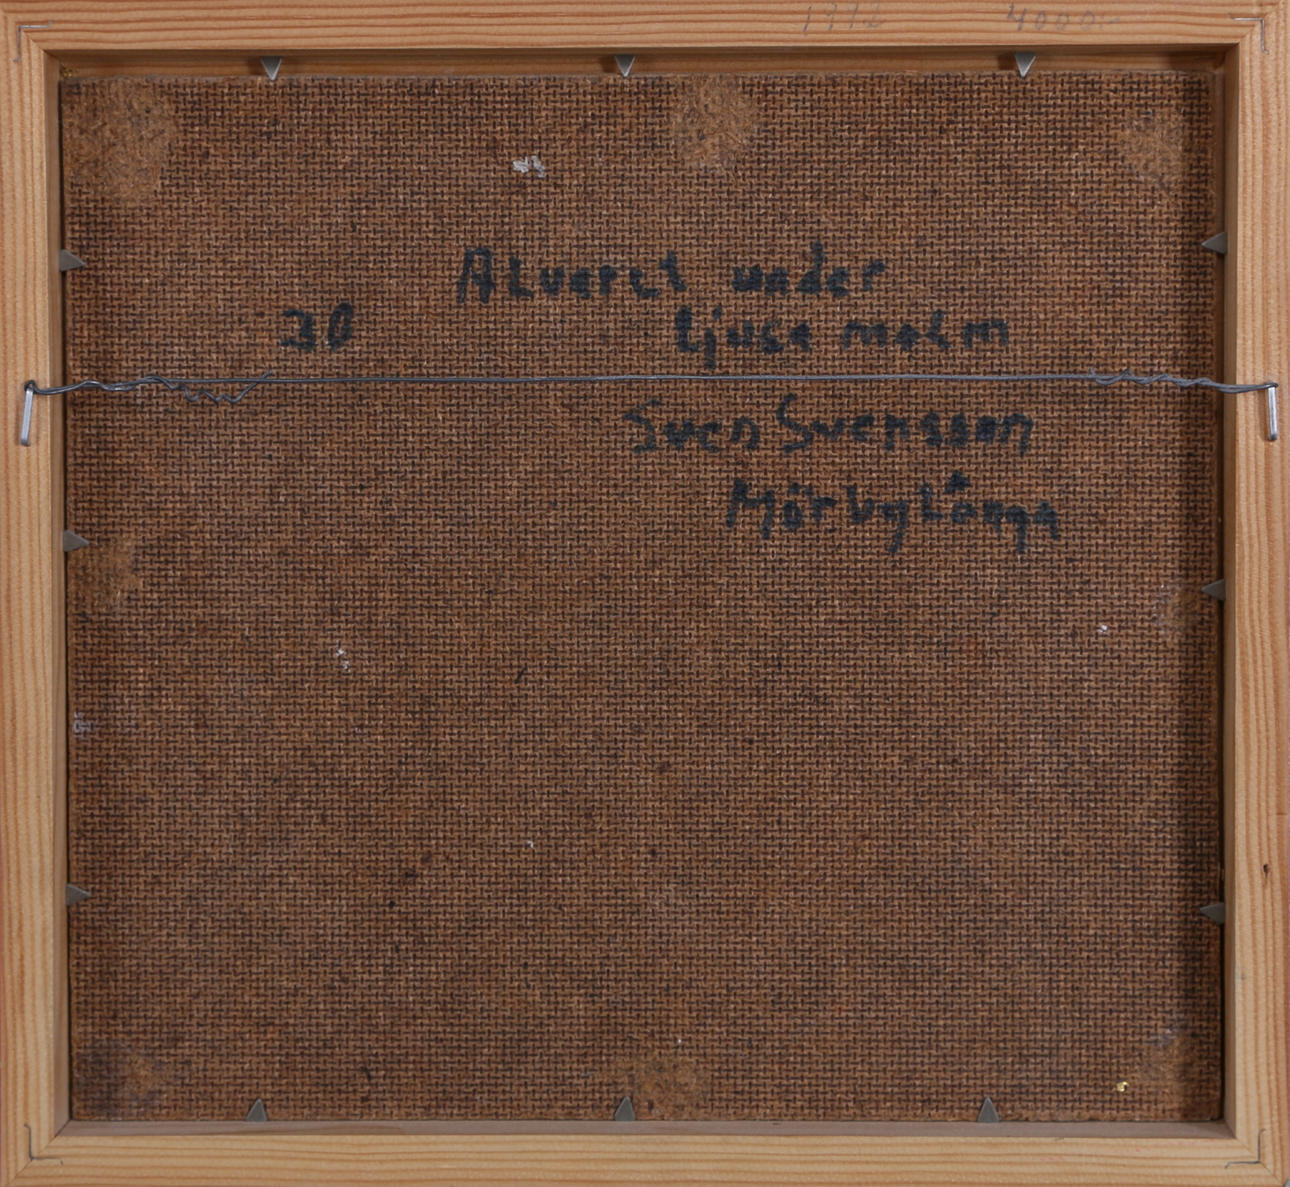 1992 4000:-
Alveret under
30 ljusa moln
Sven Svensson
Mörbylånga